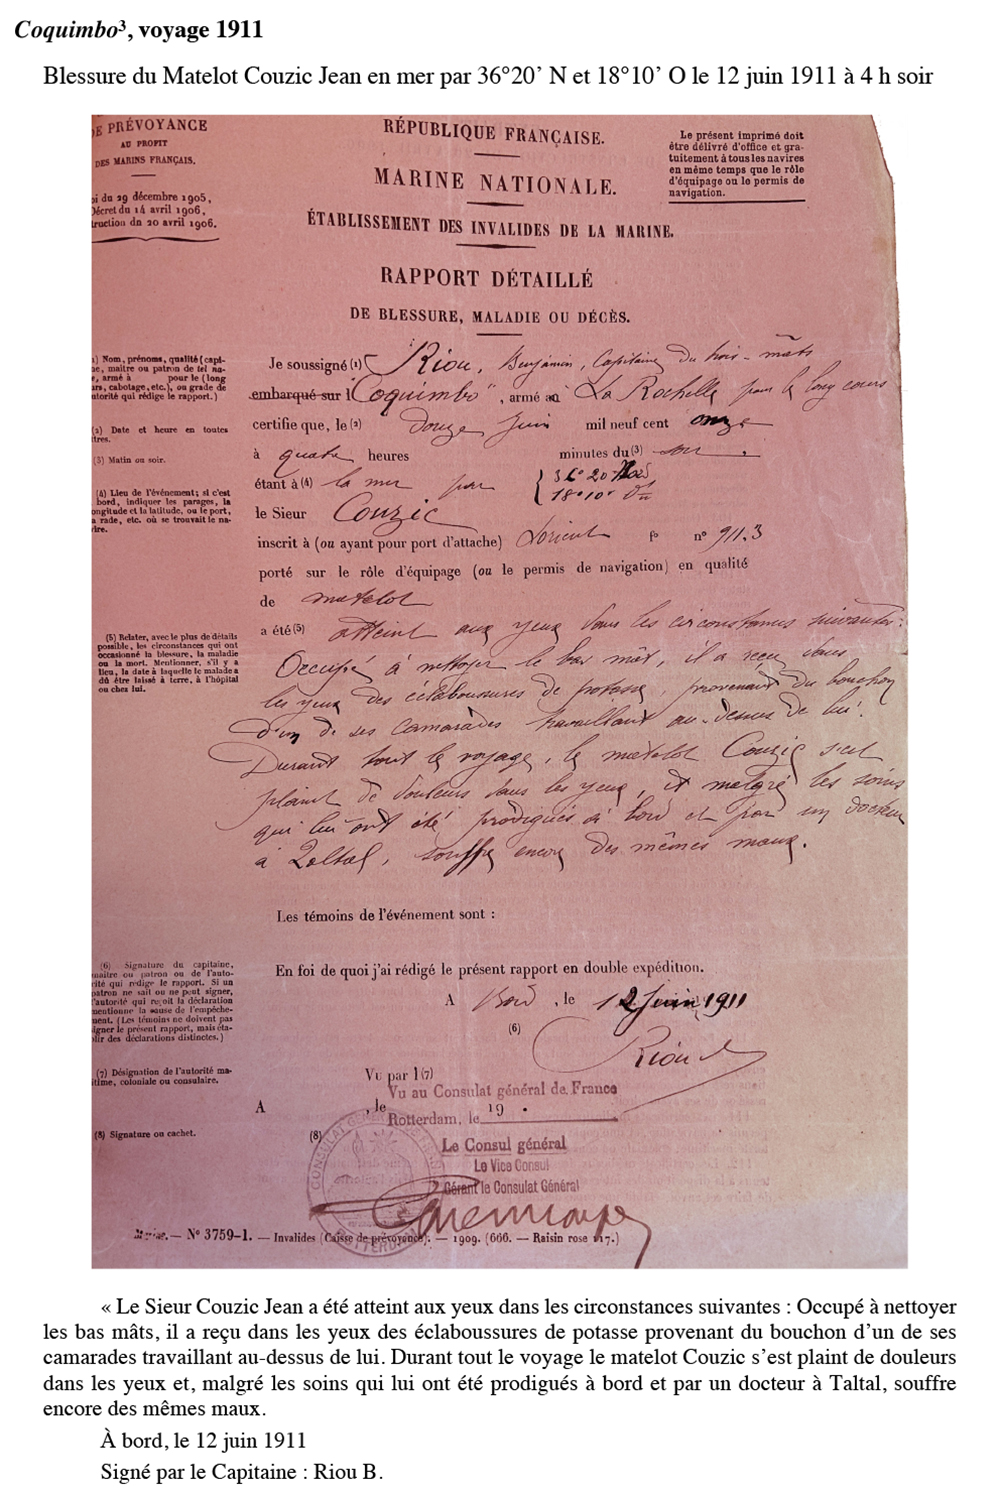 Coquimbo³, voyage 1911
Blessure du Matelot Couzic Jean en mer par 36°20’ N et 18°10’ O le 12 juin 1911 à 4 h soir
E PRÉVOYANCE
AU PROFIT
DES MARINS FRANÇAIS.
i du 29 décembre 1905,
Décret du 14 avril 1906,
truction du 20 avril 1906.
RÉPUBLIQUE FRANÇAISE.
MARINE NATIONALE.
ÉTABLISSEMENT DES INVALIDES DE LA MARINE.
Le présent imprimé doit
être délivré d'office et gra-
tuitement à tous les navires
en même temps que le rôle
d'équipage ou le permis de
navigation.
RAPPORT DÉTAILLÉ
DE BLESSURE, MALADIE OU DÉCÈS.
) Nom, prénoms, qualité (capi-
ne, maître ou patron de tel na-
e, armé à pour le (long
rs, cabotage, etc.), ou grade de
utorité qui rédige le rapport.)
(2) Date et heure en toutes
tres.
(3) Matin ou soir.
(4) Lieu de l'événement; si c'est
bord, indiquer les parages, la
ongitude et la latitude, ou le port,
a rade, etc. où se trouvait le na-
ire.
Je soussigné (1) Riou, Benjamin, Capitaine du trois-mâts
embarqué sur l "Coquimbo", armé au La Rochelle pour le long cours
certifie que, le (2) Douze Juin mil neuf cent onze
à quatre heures minutes du (3) soir.
étant à (4) la mer par { 36°20 Nord
18°10'
le Sieur Couzic
inscrit à (ou ayant pour port d'attache) Lorient f° n° 911.3
porté sur le rôle d'équipage (ou le permis de navigation) en qualité
de matelot
(5) Relater, avec le plus de détails
possible, les circonstances qui ont
occasionné la blessure, la maladie
ou la mort. Mentionner, s'il y a
lieu, la date à laquelle le malade a
dû être laissé à terre, à l'hôpital
ou chez lui.
a été (5) atteint aux yeux dans les circonstances suivantes :
Occupé à nettoyer le bas mât, il a reçu dans
les yeux des éclaboussures de potasse, provenant du bouchon
d'un de ses camarades travaillant au-dessus de lui.
Durant tout le voyage, le matelot Couzic s'est
plaint de douleurs dans les yeux, et malgré les soins
qui lui ont été prodigués à bord et par un docteur
à Taltal, souffre encore des mêmes maux.
Les témoins de l'événement sont :
(6) Signature du capitaine,
maître ou patron ou de l'auto-
rité qui rédige le rapport. Si un
patron ne sait ou ne peut signer,
l'autorité qui reçoit la déclaration
mentionne la cause de l'empêche-
ment. (Les témoins ne doivent pas
igner le présent rapport, mais éta-
lir des déclarations distinctes.)
En foi de quoi j'ai rédigé le présent rapport en double expédition.
A Bord, le 12 Juin 1911
(6)
Riou
(7) Désignation de l'autorité ma-
itime, coloniale ou consulaire.
Vu par l (7)
Vu au Consulat général de France
A , le 19 .
Rotterdam, le
(8) Signature ou cachet.
(8)
Le Consul général
Le Vice Consul
Gérant le Consulat Général
— N° 3759-1. — Invalides (Caisse de prévoyance). — 1909. (666. — Raisin rose 117.)
« Le Sieur Couzic Jean a été atteint aux yeux dans les circonstances suivantes : Occupé à nettoyer
les bas mâts, il a reçu dans les yeux des éclaboussures de potasse provenant du bouchon d’un de ses
camarades travaillant au-dessus de lui. Durant tout le voyage le matelot Couzic s’est plaint de douleurs
dans les yeux et, malgré les soins qui lui ont été prodigués à bord et par un docteur à Taltal, souffre
encore des mêmes maux.
À bord, le 12 juin 1911
Signé par le Capitaine : Riou B.